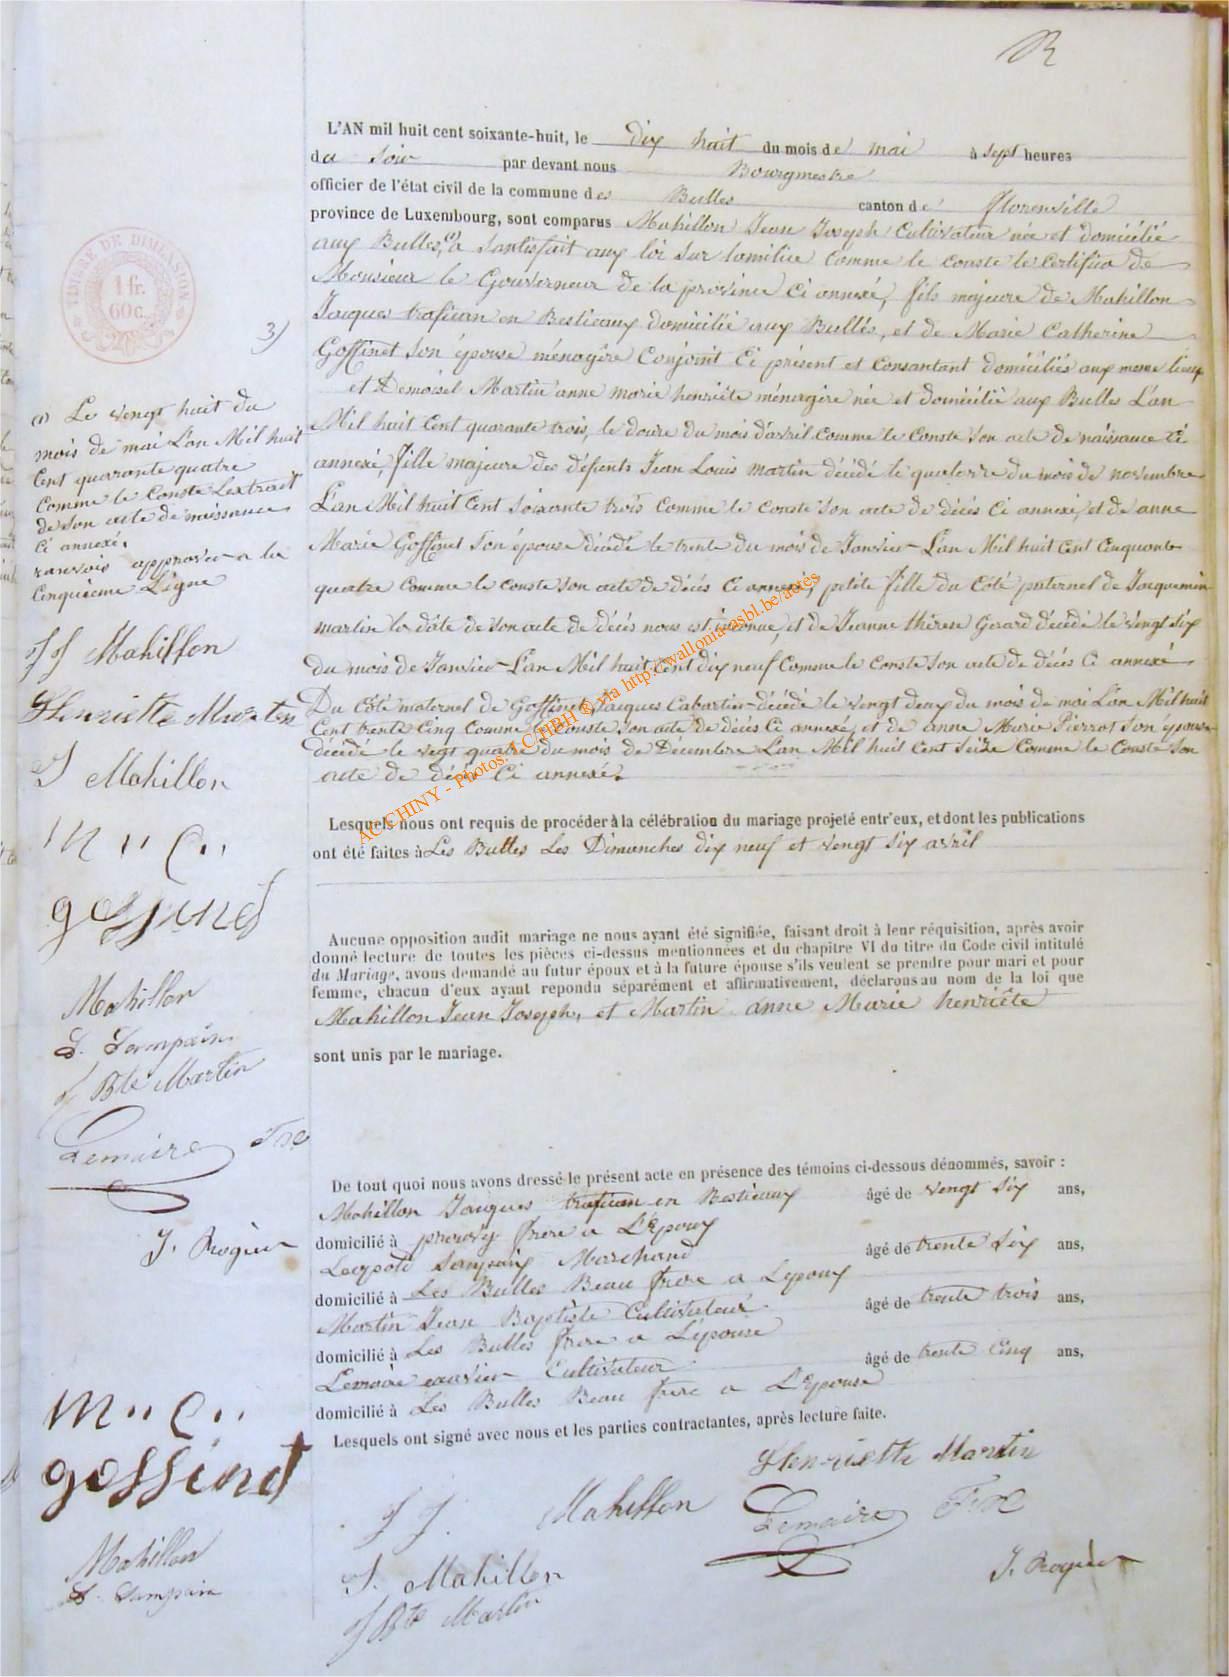 R
L'AN mil huit cent soixante-huit, le dix huit du mois de mai à sept heures
du soir par devant nous Bourgmestre
officier de l'état civil de la commune des Bulles canton de florenville
province de Luxembourg, sont comparus Mahillon Jean Joseph Cultivateur née et domicilié
aux Bulles, (1) a santisfait aux loi sur lamilice comme le conste le certifica de
Monsieur le Gouverneur de la province ci annexé, fils majeure de Mahillon
Jacques trafican en Bestieaux domicilié aux Bulles, et de Marie Catherine
Goffinet son épouse ménagère conjoint ci présent et consantant domiciliés aux meme lieux
et Demoisel Martin anne marie henriète ménagère née et domicilié aux Bulles L'an
Mil huit Cent quarante trois, le douze du mois d'avril comme le conste son acte de naissance ci
annexé, fille majeure des défunts Jean Louis martin décédé le quatorze du mois de novembre
L'an Mil huit Cent soixante trois comme le conste son acte de décés ci annexé, et de anne
Marie Goffinet son épouse décédé le trente du mois de Janvier L'an Mil huit Cent Cinquante
quatre comme le conste son acte de décés ci annexé, petite fille du Côté paternel de Jacquemin
martin la date de son acte de décés nous est inconue, et de Jeanne thérese Gerard décédé le vingt six
du mois de Janvier L'an Mil huit Cent dix neuf comme le conste son acte de décés ci annexé
Du Côté maternel de Goffinet Jacques Cabartier décédé le vingt deux du mois de mai L'an Mil huit
Cent trente Cinq Comme le Conste son acte de décés ci annexé, et de anne Marie Pierrot son épouse
décédé le vegt quatre du mois de Décembre L'an Mil huit Cent Seize Comme le Conste son
acte de décés Ci annexé.
3)
TIMBRE DE DIMENSION
1 fr.
60 c.
(1) Le vengt huit du
mois de mai L'an Mil huit
Cent quarante quatre
comme le Conste Lextrait
de son acte de naissance
ci annexé.
ranvois approuver a la
Cinquième Ligne
JJ Mahillon
Henriette Martin
J Mahillon
m'' C''
goffinet
Mahillon
L. Sampain
J Bte Martin
Lemaire Fse
J. Rogier
Lesquels nous ont requis de procéder à la célébration du mariage projeté entr'eux, et dont les publications
ont été faites à Les Bulles Les Dimanches dix neuf et vengt six avril
Aucune opposition audit mariage ne nous ayant été signifiée, faisant droit à leur réquisition, après avoir
donné lecture de toutes les pièces ci-dessus mentionnées et du chapitre VI du titre du Code civil intitulé
du Mariage, avons demandé au futur époux et à la future épouse s'ils veulent se prendre pour mari et pour
femme, chacun d'eux ayant repondu séparément et affirmativement, déclarons au nom de la loi que
Mahillon Jean Joseph, et Martin anne Marie henriète
sont unis par le mariage.
De tout quoi nous avons dressé le présent acte en présence des témoins ci-dessous dénommés, savoir :
Mahillon Jacques trafican en Bestieaux âgé de vengt six ans,
domicilié à prouvy frere a L'Epoux
Leopold Sampain Marchand âgé de trente six ans,
domicilié à Les Bulles Beau frere a Lepoux
Martin Jean Baptiste Cultivateur âgé de trente trois ans,
domicilié à Les Bulles frere a L'épouse
Lemaire Cultivateur âgé de trente Cinq ans,
domicilié à Les Bulles Beau frere a L'Epouse
Lesquels ont signé avec nous et les parties contractantes, après lecture faite.
Henriette Martin
m'' C''
goffinet
J J. Mahillon
Lemaire Fse
Mahillon
L. Sampain
J. Mahillon
J. Rogier
J Bte Martin
AC CHINY - Photos: LC, HBH © via http://wallonia-asbl.be/actes